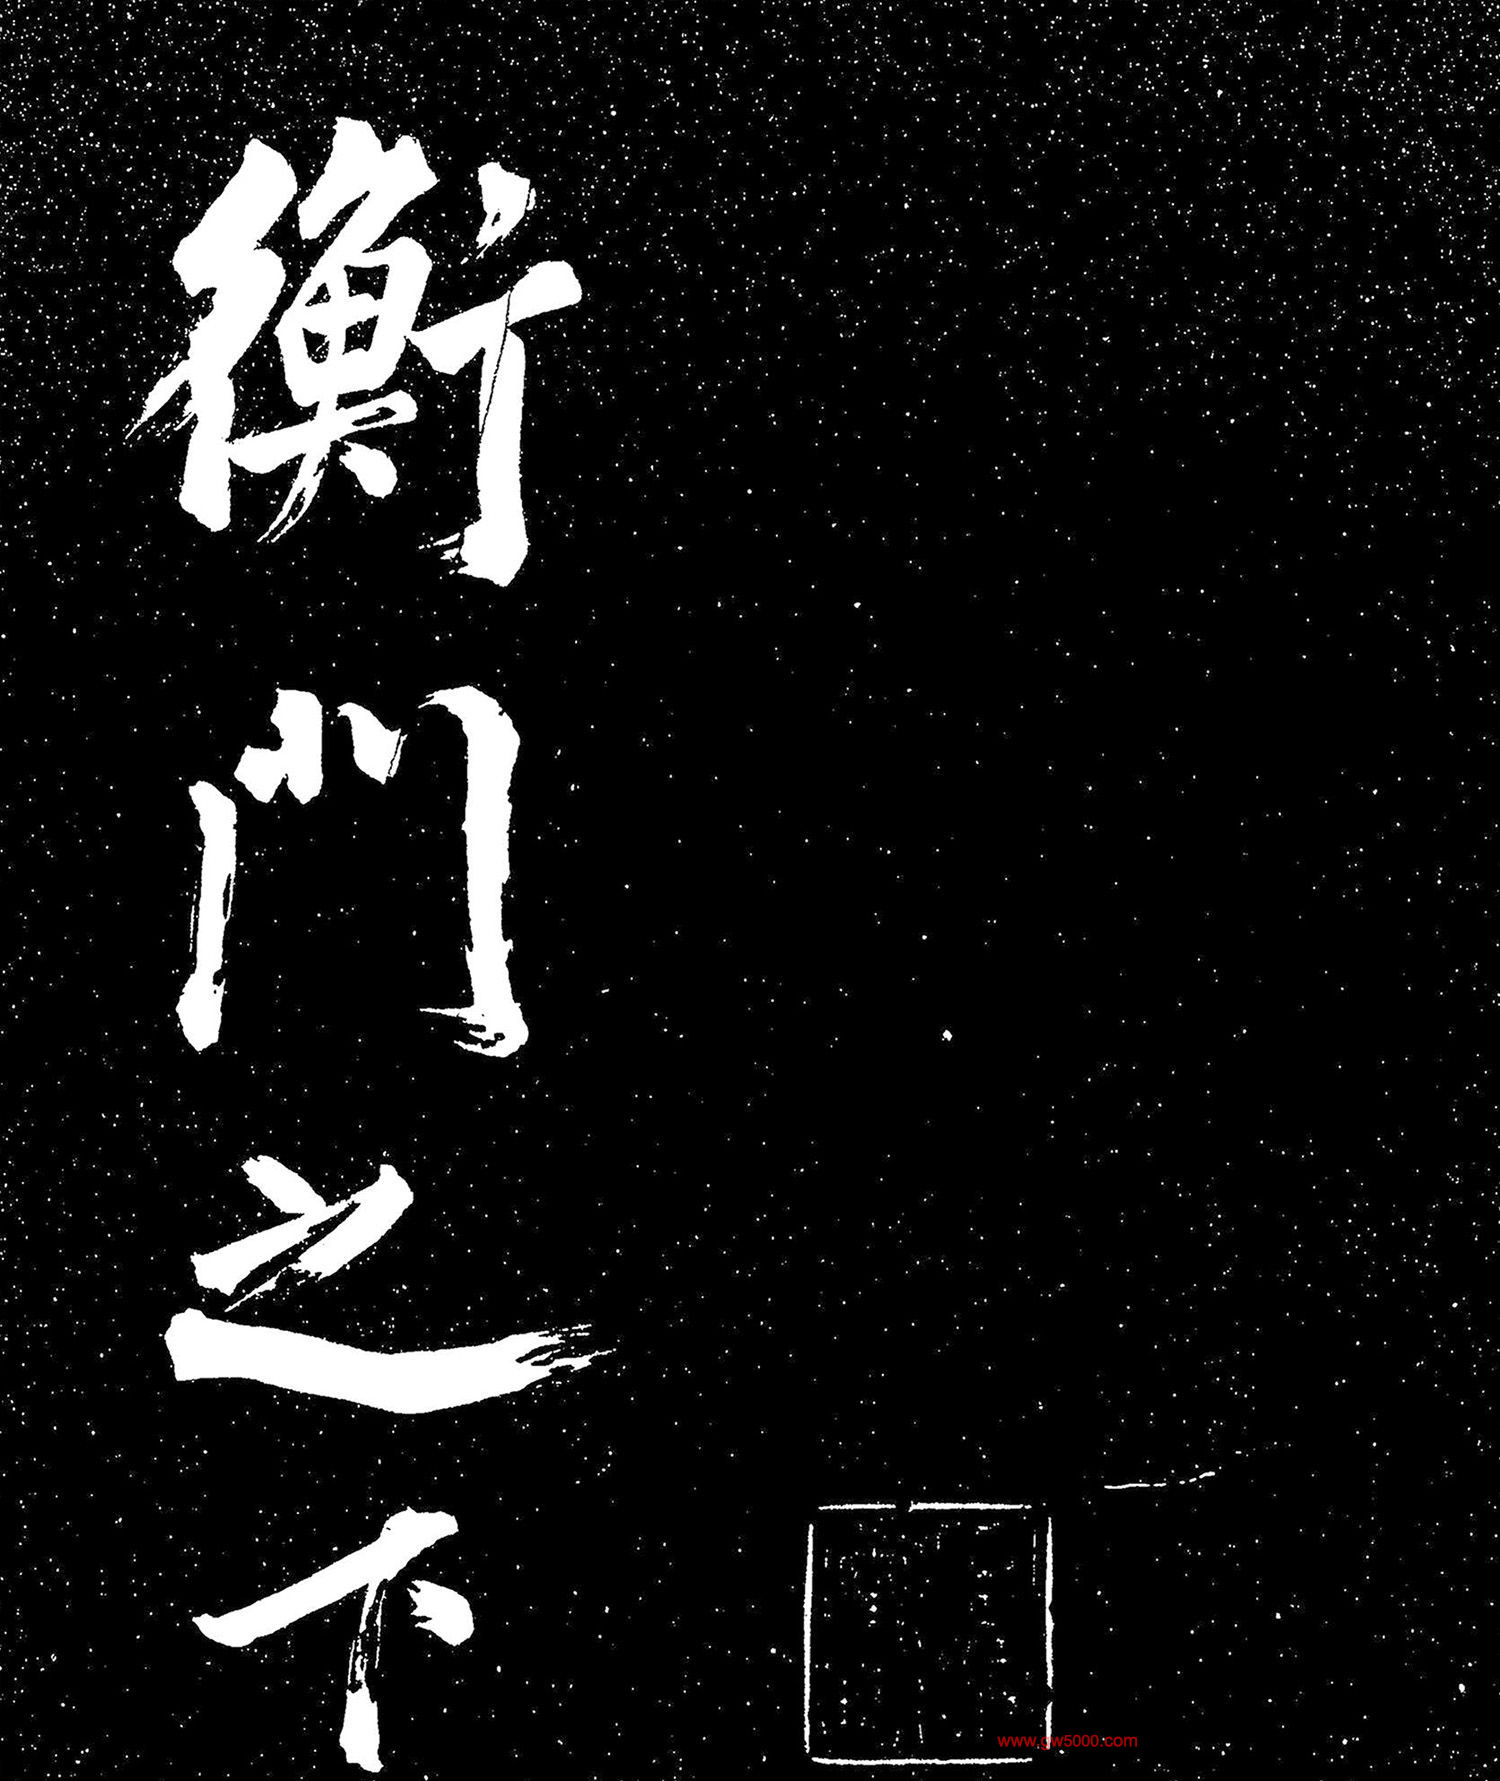 衡門之下
www.gw5000.com